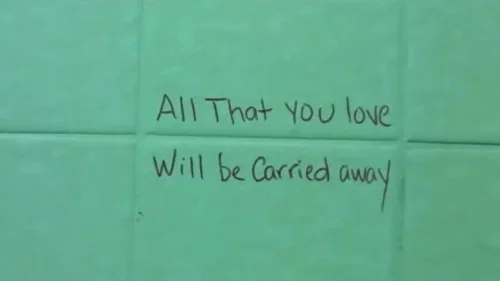 All That you love
Will be Carried away